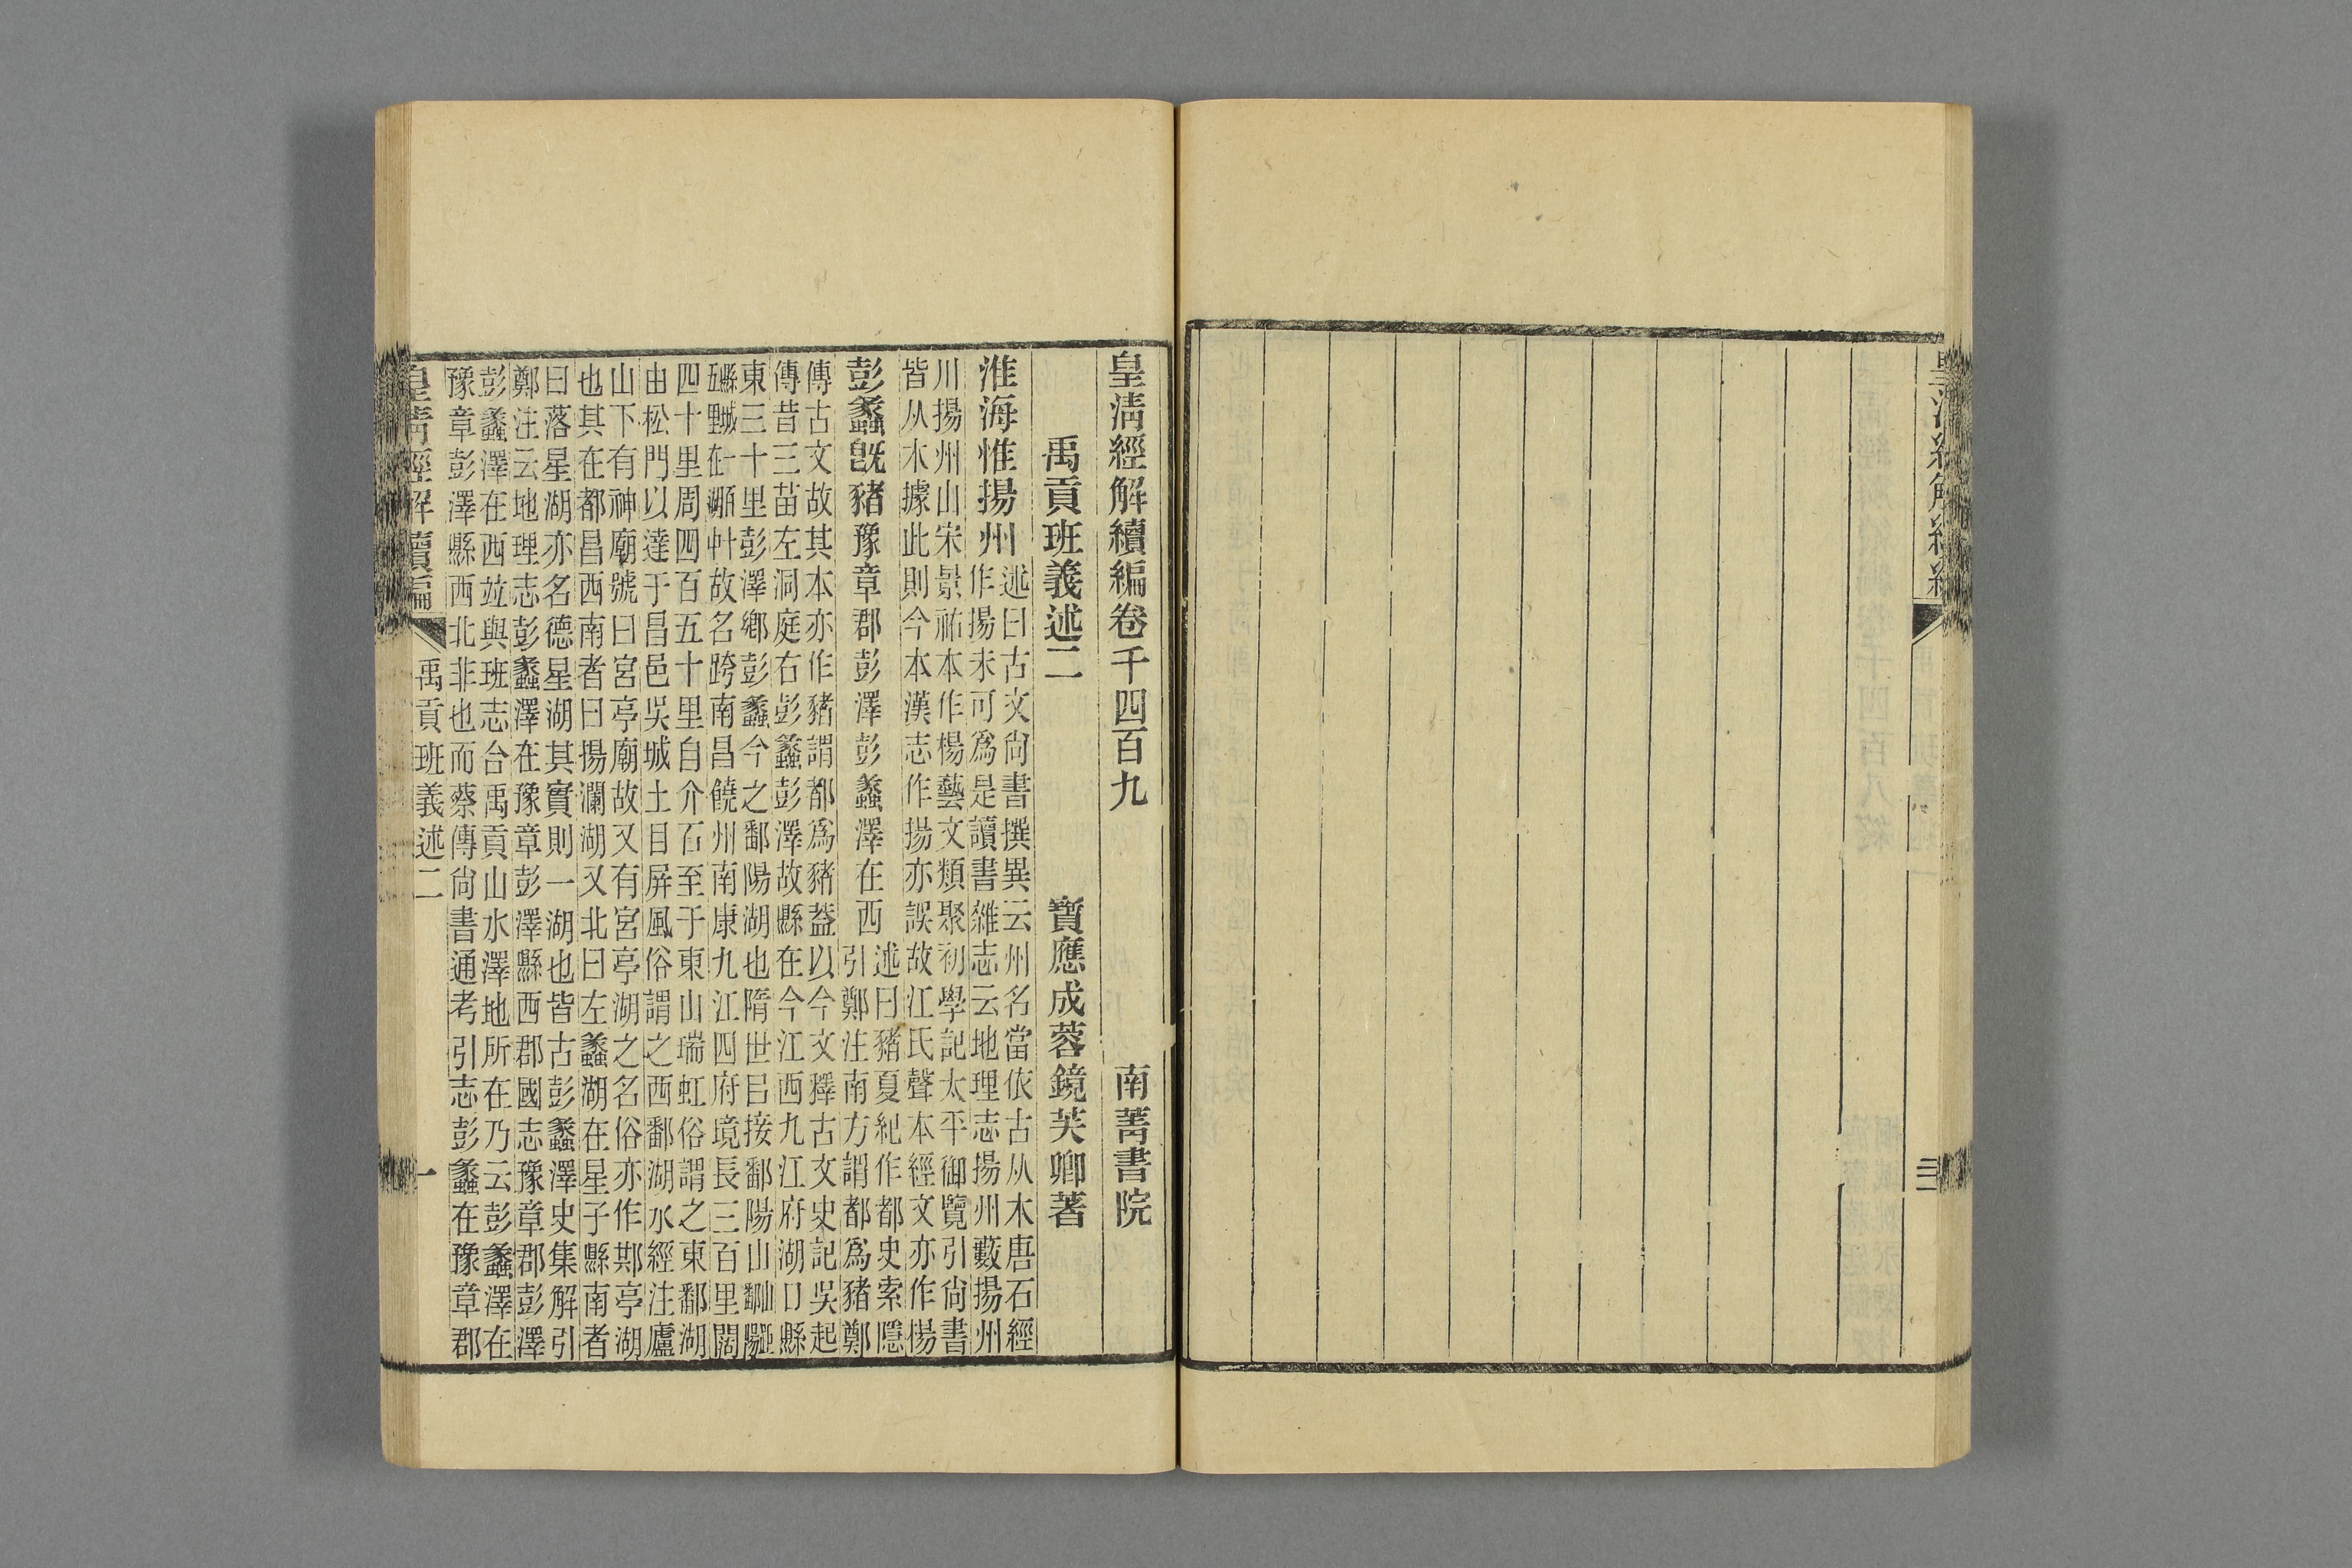 皇淸經解續編卷千四百九
南菁書院
禹貢班義述二
寶應成蓉鏡芙卿著
淮海惟揚州
述曰古文尙書撰異云州名當依古从木唐石經
作揚未可爲是讀書雜志云地理志揚州藪揚州
川揚州山宋景祐本作楊藝文類聚初學記太平御覽引尙書
皆从木據此則今本漢志作揚亦誤故江氏聲本經文亦作楊
彭蠡旣豬豫章郡彭澤彭蠡澤在西
述曰豬夏紀作都史索隱
引鄭注南方謂都爲豬鄭
傳古文故其本亦作豬謂都爲豬葢以今文釋古文史記吳起
傳昔三苗左洞庭右彭蠡彭澤故縣在今江西九江府湖口縣
東三十里彭澤鄕彭蠡今之鄱陽湖也隋世㠯接鄱陽山
四十里周四百五十里自介石至于東山瑞虹俗謂之東鄱湖
由松門以達于昌邑吳城土目屏風俗謂之西鄱湖水經注廬
山下有神廟號曰宮亭廟故又有宮亭湖之名俗亦作䢼亭湖
也其在都昌西南者曰揚瀾湖又北曰左蠡湖在星子縣南者
曰落星湖亦名德星湖其實則一湖也皆古彭蠡澤史集解引
鄭注云地理志彭蠡澤在豫章彭澤縣西郡國志豫章郡彭澤
彭蠡澤在西竝與班志合禹貢山水澤地所在乃云彭蠡澤在
豫章彭澤縣西北非也而蔡傳尙書通考引志彭蠡在豫章郡
皇淸經解續編
禹貢班義述二
一